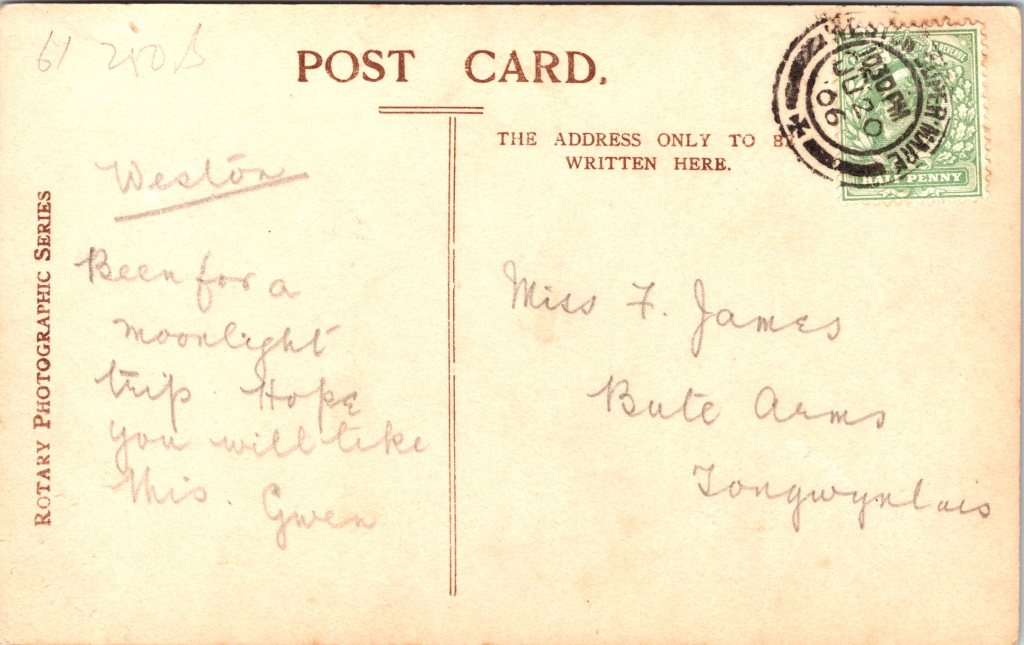 61 280B
POST CARD.
THE ADDRESS ONLY TO BE
WRITTEN HERE.
WESTON SUPER MARE
10.30 PM
JU 20
06
REVENUE
HALFPENNY
ROTARY PHOTOGRAPHIC SERIES
Weston
Been for a
moonlight
trip. Hope
you will like
this. Gwen
Miss F. James
Bute Arms
Tongwynlais